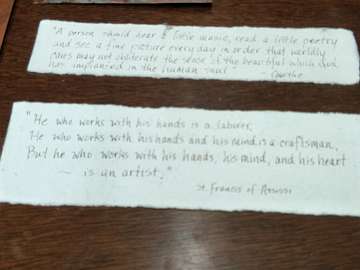 "A person should hear a little music, read a little poetry
and see a fine picture every day in order that worldly
cares may not obliterate the sense of the beautiful which God
has implanted in the human soul" - Goethe
"He who works with his hands is a laborer,
He who works with his hands and his mind is a craftsman,
But he who works with his hands, his mind, and his heart
~ is an artist."
St. Francis of Assissi